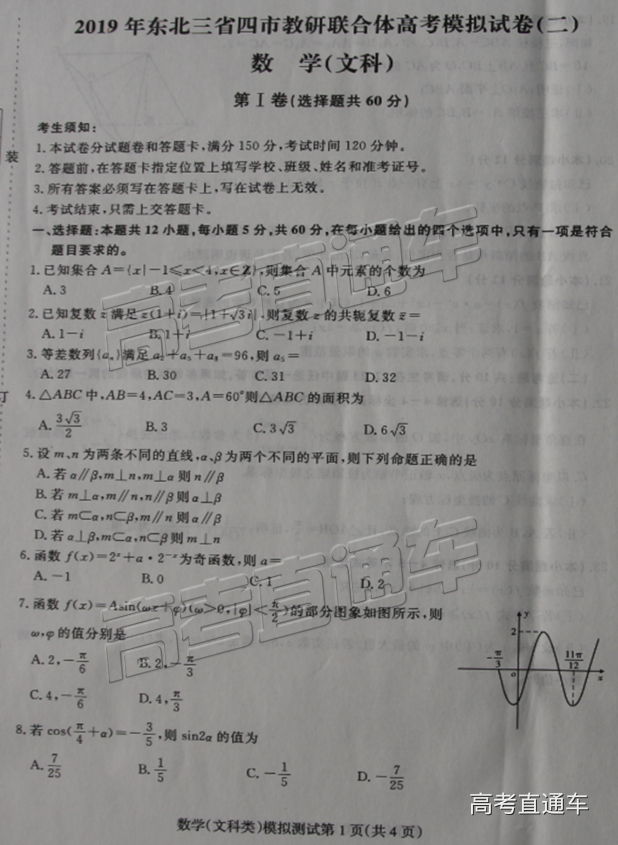 2019 年东北三省四市教研联合体高考模拟试卷(二)
数 学(文科)
第 I 卷(选择题共 60 分)
考生须知:
1.本试卷分试题卷和答题卡,满分 150 分,考试时间 120 分钟。
2.答题前,在答题卡指定位置上填写学校、班级、姓名和准考证号。
3.所有答案必须写在答题卡上,写在试卷上无效。
4.考试结束,只需上交答题卡。
一、选择题:本题共 12 小题,每小题 5 分,共 60 分,在每小题给出的四个选项中,只有一项是符合
题目要求的。
1.已知集合 A={x|-1≤x<4,x∈Z},则集合 A 中元素的个数为
A.3 B.4 C.5 D.6
2.已知复数 z 满足 z(1+i)=|1+√3i|,则复数 z 的共轭复数 z̄=
A.1-i B.1+i C.-1+i D.-1-i
3.等差数列{aₙ}满足 a₂+a₅+a₈=96,则 a₅=
A.27 B.30 C.31 D.32
4.△ABC 中,AB=4,AC=3,A=60°则△ABC 的面积为
A.3√3/2 B.3 C.3√3 D.6√3
5.设 m、n 为两条不同的直线,α、β 为两个不同的平面,则下列命题正确的是
A.若 α∥β,m⊥n,m⊥α 则 n∥β
B.若 m⊥α,m∥n,n∥β 则 α⊥β
C.若 m⊂α,n⊂β,m∥n 则 α∥β
D.若 α⊥β,m⊂α,n⊂β 则 m⊥n
6.函数 f(x)=2ˣ+a·2⁻ˣ 为奇函数,则 a=
A.-1 B.0 C.1 D.2
7.函数 f(x)=Asin(ωx+φ)(ω>0,|φ|<π/2)的部分图象如图所示,则
ω,φ 的值分别是
A.2,-π/6 B.2,-π/3
C.4,-π/6 D.4,π/3
y
2
-π/3
o
11π/12
x
8.若 cos(π/4+α)=-3/5,则 sin2α 的值为
A.7/25 B.1/5 C.-1/5 D.-7/25
数学(文科类)模拟测试第 1 页(共 4 页)
装
订
高考直通车
高考直通车
高考直通车